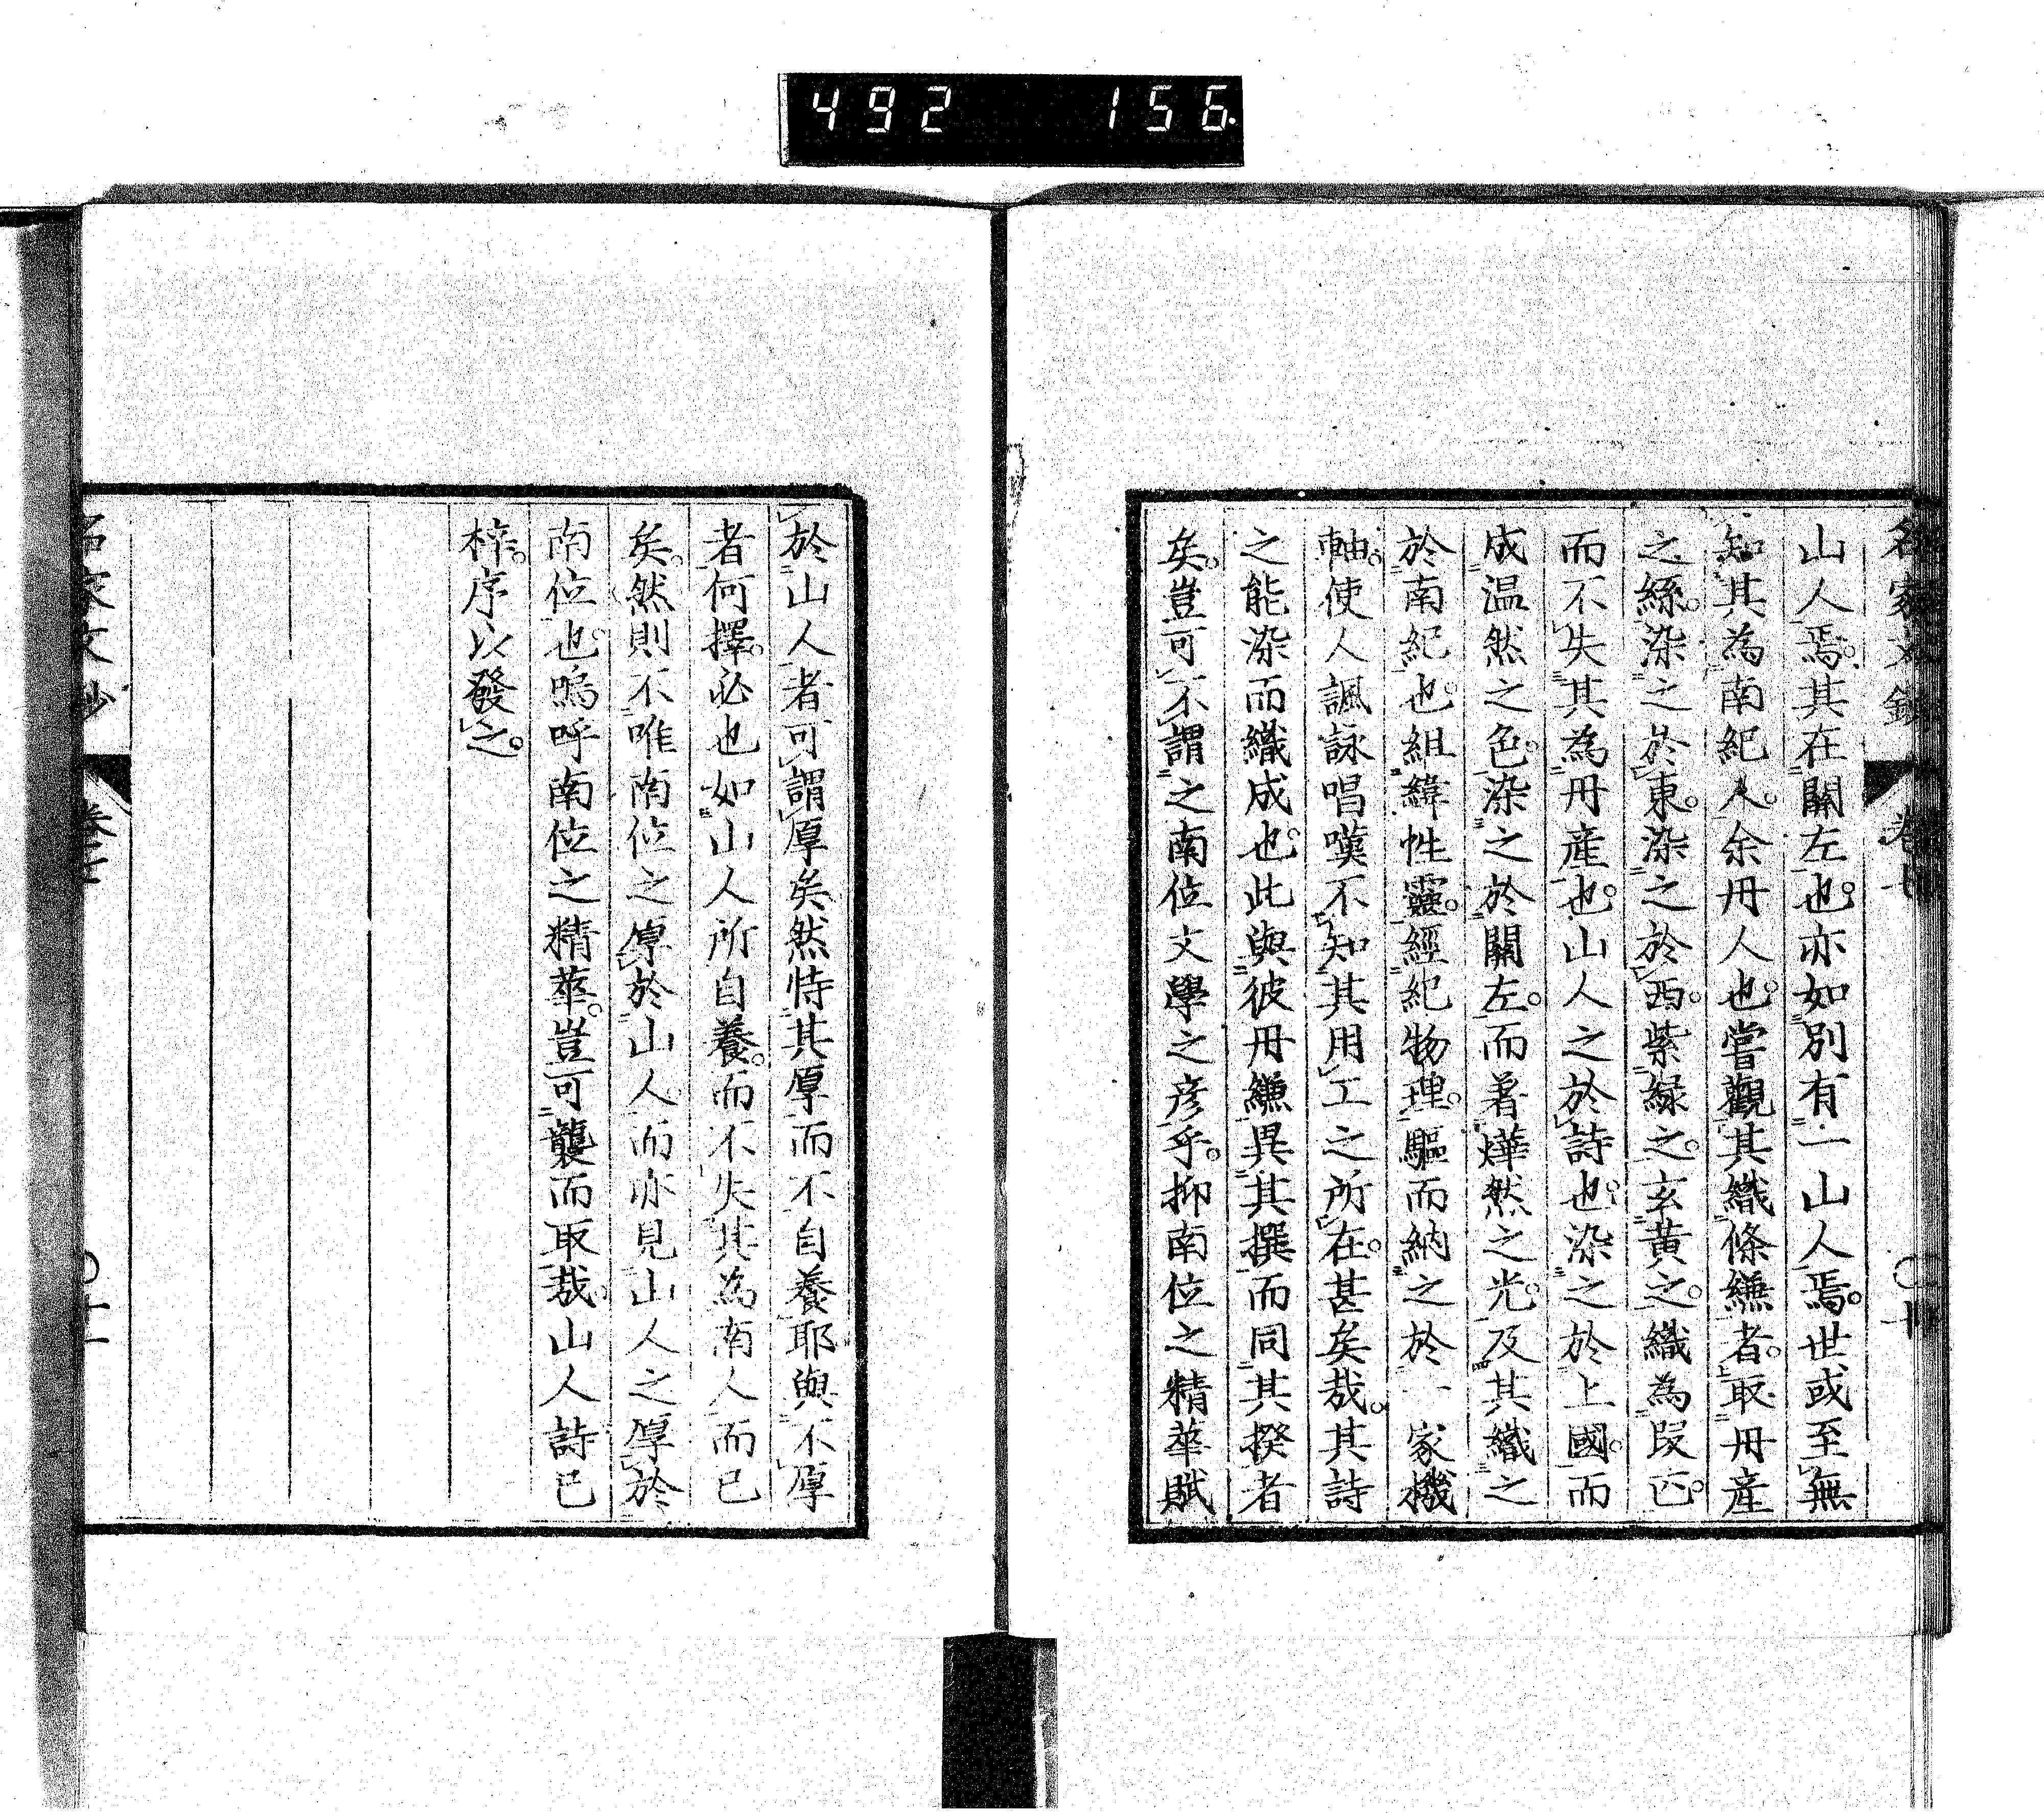 492 156
名家文鈔 卷十 〇十
山人焉。其在關左也。亦如別有一山人焉。世或至無
知其為南紀人。余丹人也。嘗觀其織絛縑者。取丹產
之絲。染之於東。染之於西。紫綠之。玄黃之。織為段匹。
而不失其為丹產也。山人之於詩也。染之於上國。而
成温然之色。染之於關左。而著燁然之光。及其織之
於南紀也。組緯性靈。經紀物理。驅而納之於一家機
軸。使人諷詠唱嘆不知其用工之所在。甚矣哉。其詩
之能染而織成也。此與彼丹縑異其撰而同其揆者
矣。豈可不謂之南位文學之彦乎。抑南位之精華賦
於山人者可謂厚矣然恃其厚而不自養耶與不厚
者何擇。必也如山人所自養。而不失其為南人而已
矣。然則不唯南位之厚於山人。而亦見山人之厚於
南位也。嗚呼南位之精華。豈可襲而取哉。山人詩已
梓。序以發之。
名家文鈔 卷十 〇十一